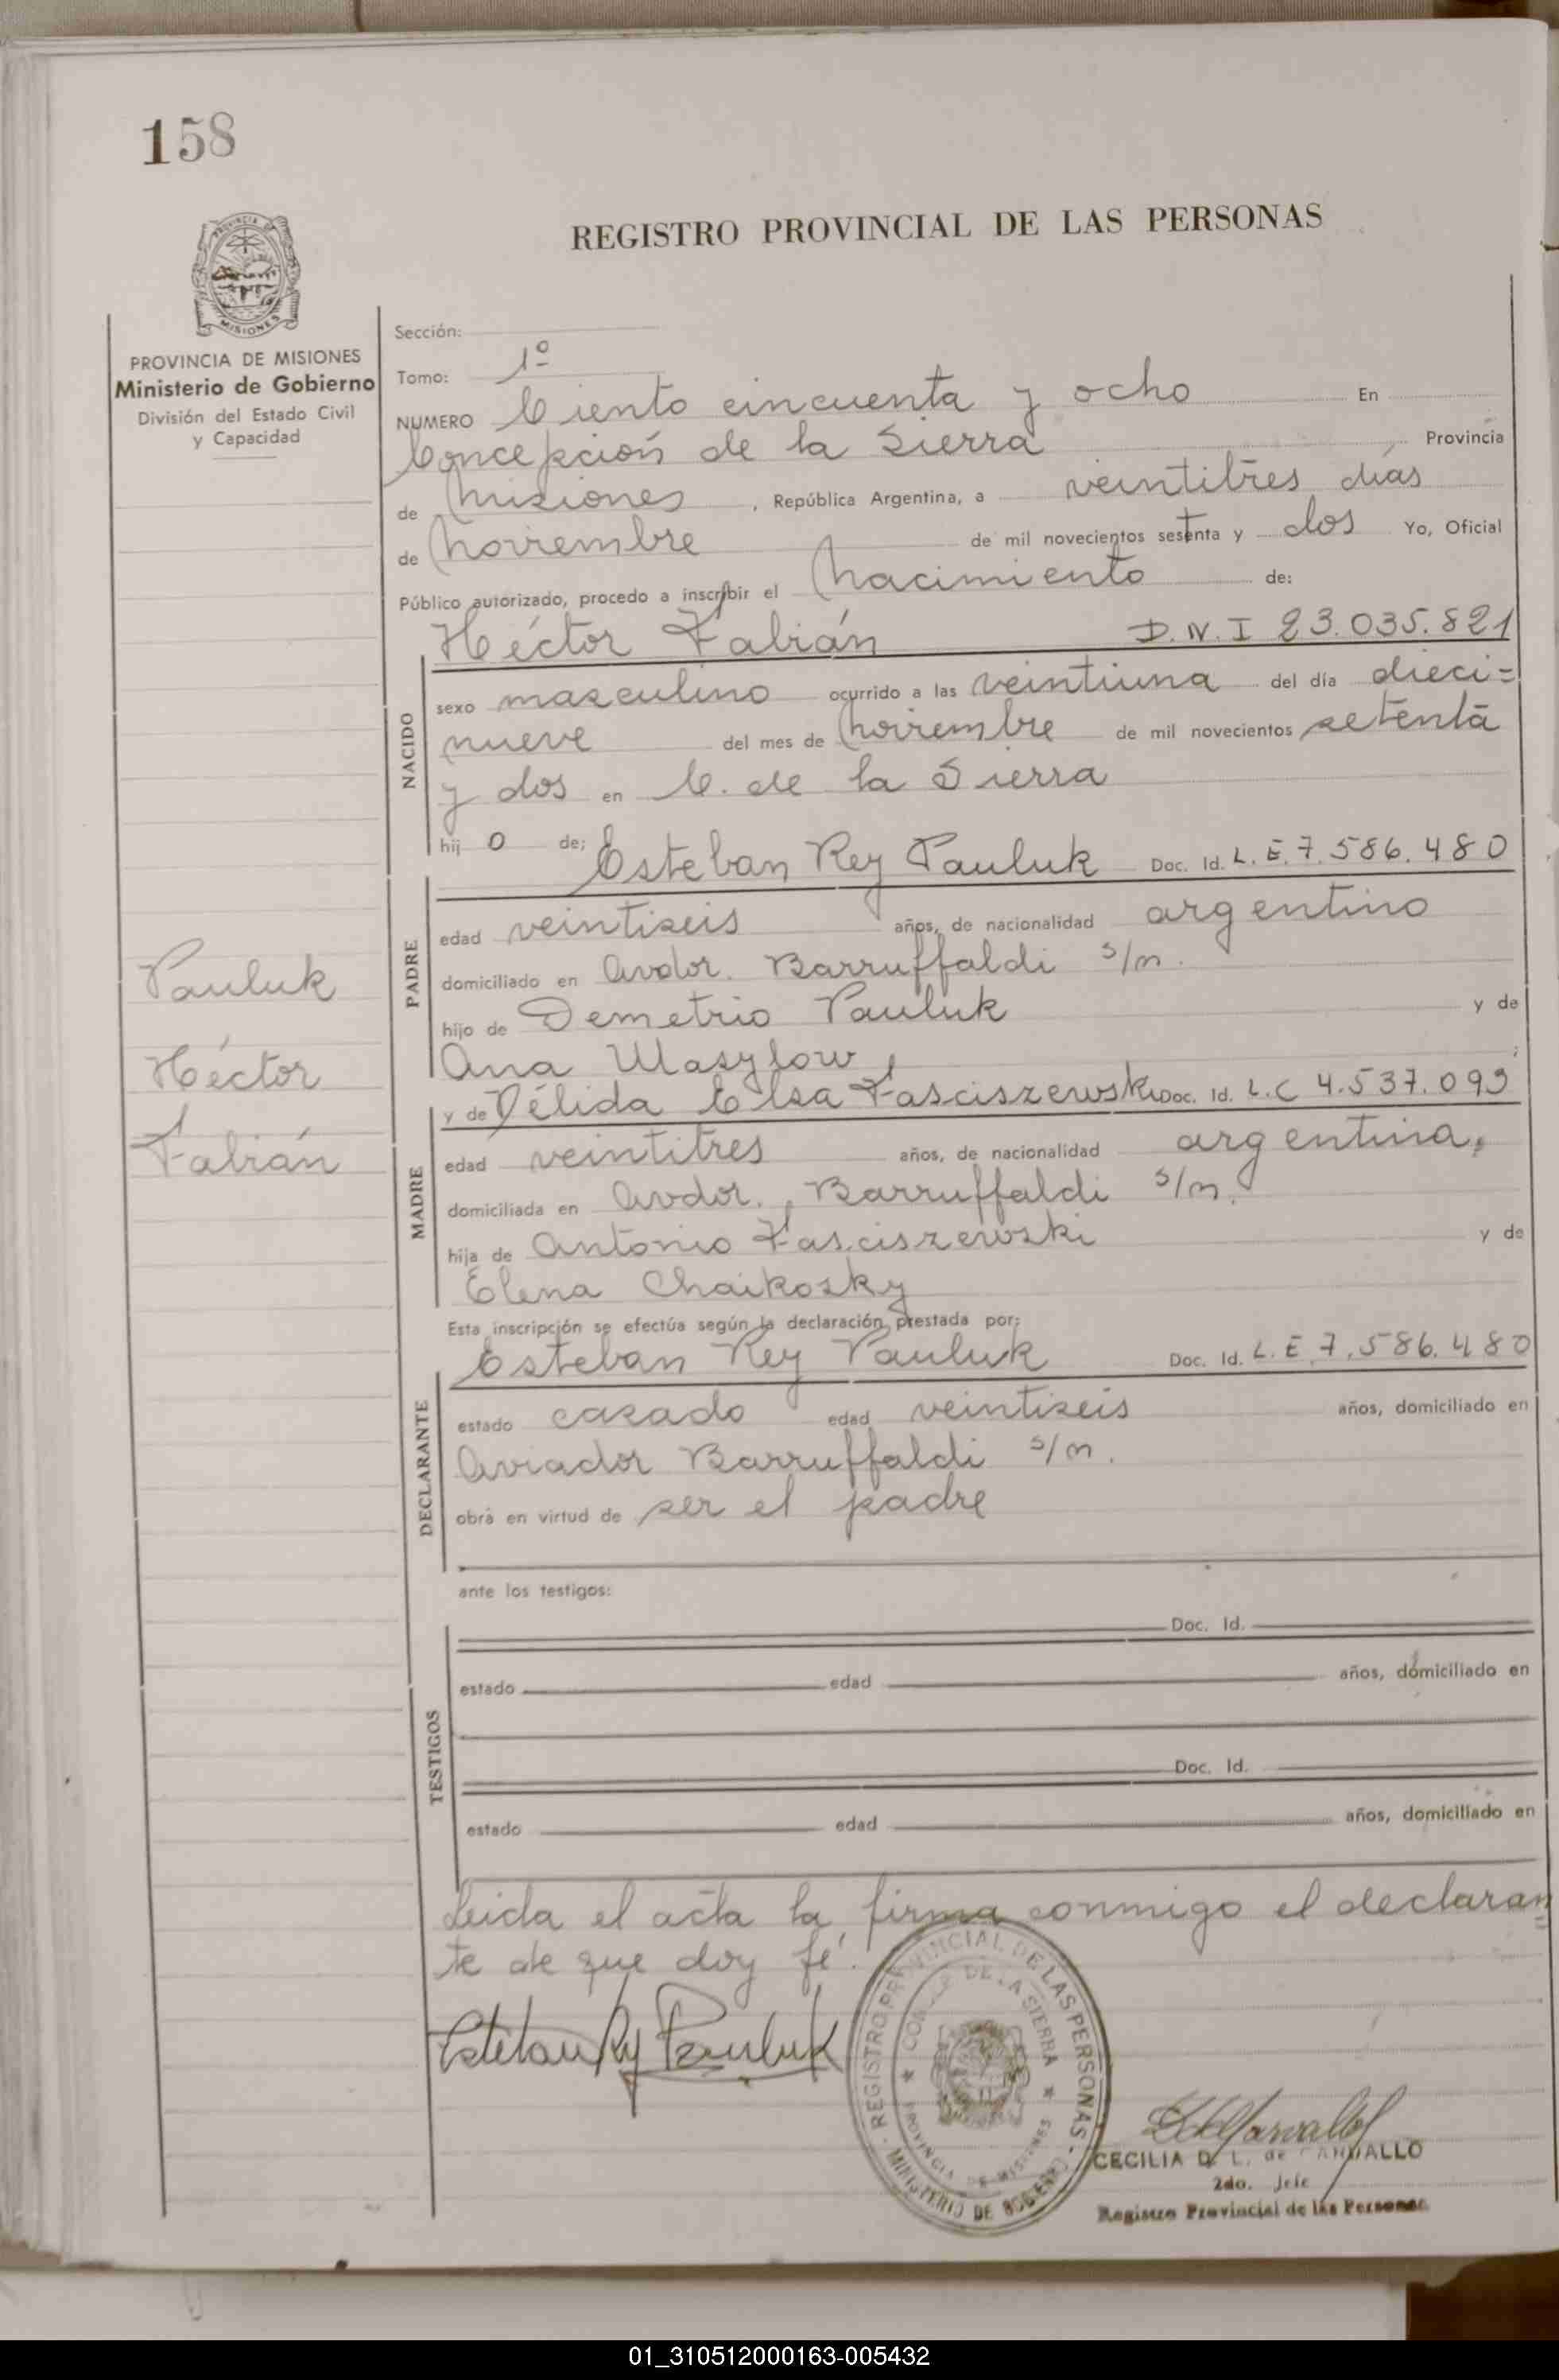 158
REGISTRO PROVINCIAL DE LAS PERSONAS
PROVINCIA
MISIONES
PROVINCIA DE MISIONES
Ministerio de Gobierno
División del Estado Civil
y Capacidad
Sección:
Tomo: 1º
NUMERO Ciento cincuenta y ocho En
Concepción de la Sierra Provincia
de Misiones , República Argentina, a veintitrés días
de Noviembre de mil novecientos setenta y dos Yo, Oficial
Público autorizado, procedo a inscribir el Nacimiento de:
Héctor Fabián D.N.I 23.035.821
NACIDO
sexo masculino ocurrido a las veintiuna del día dieci=
nueve del mes de Noviembre de mil novecientos setenta
y dos en C. de la Sierra
hij o de; Esteban Rey Pauluk Doc. Id. L.E.7.586.480
PADRE
edad veintiseis años, de nacionalidad argentino
domiciliado en Avdor. Barruffaldi s/n.
hijo de Demetrio Pauluk y de
Ana Wasylow ;
y de Délida Elsa Fasciszewski Doc. Id. L.C 4.537.093
MADRE
edad veintitres años, de nacionalidad argentina,
domiciliada en Avdor. Barruffaldi s/n.
hija de Antonio Fasciszewski y de
Elena Chaikosky
Esta inscripción se efectúa según la declaración prestada por:
Esteban Rey Pauluk Doc. Id. L.E 7.586.480
DECLARANTE
estado casado edad veintiseis años, domiciliado en
Aviador Barruffaldi s/n.
obra en virtud de ser el padre
ante los testigos:
Doc. Id.
TESTIGOS
estado edad años, domiciliado en
Doc. Id.
estado edad años, domiciliado en
Leida el acta la firma conmigo el declaran=
te de que doy fé.
Pauluk
Héctor
Fabián
Esteban Rey Pauluk
REGISTRO PROVINCIAL DE LAS PERSONAS - MINISTERIO DE GOBIERNO -
CONCEP. DE LA SIERRA
PROVINCIA DE MISIONES
CECILIA D. L. de CARVALLO
2do. Jefe
Registro Provincial de las Personas
01_310512000163-005432